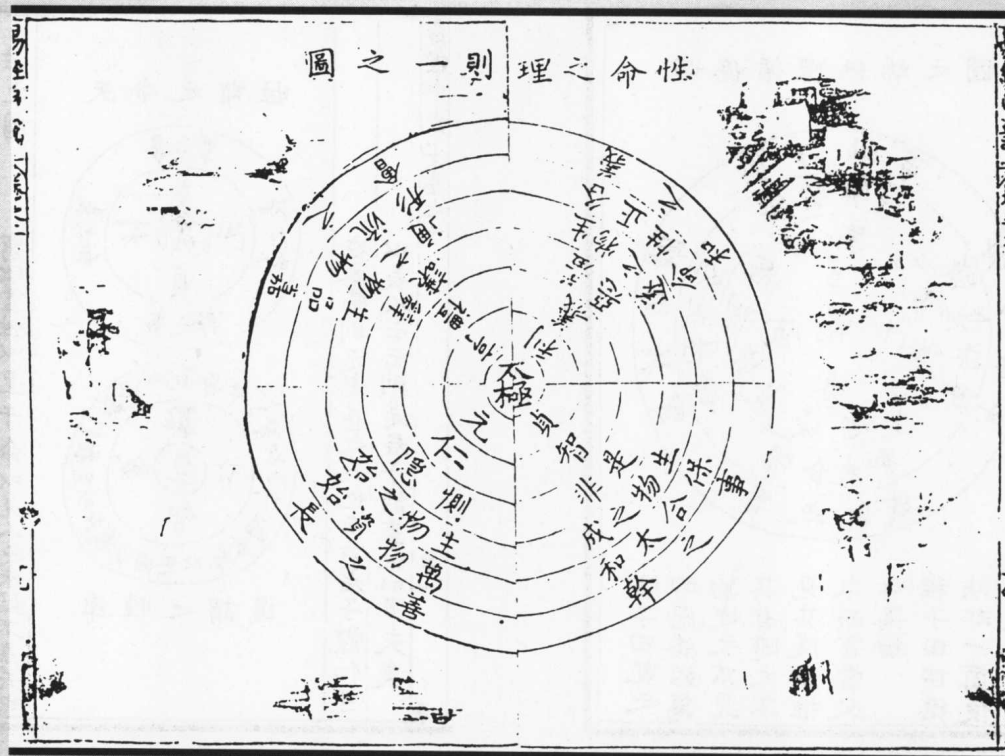 性命之理則一之圖
太極
元
仁
惻隱
生物之始
萬物資始
善之長
亨
禮
辭讓
生物之
品物流形
嘉之會
利
生物之遂
各正性命
義之和
貞
智
是非
生物之成
保合太和
事之幹